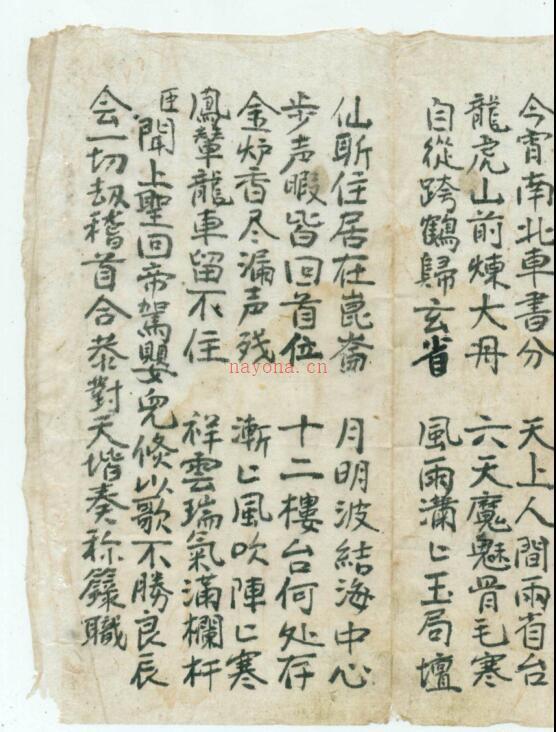 今宵南北車書分 天上人間兩省台
龍虎山前煉大丹 六天魔魅骨毛寒
自從跨鶴歸玄省 風雨瀟〻玉局壇
仙斸住居在崑崙 月明波結海中心
步声暇皆回首位 十二楼台何处存
金炉香尽漏声残 漸〻風吹陣〻寒
鳳輦龍車留不住 祥雲瑞氣滿欄杆
臣聞上聖回帝駕嬰兒倏以歌不勝良辰
会一切刼稽首合恭對天堦奏称籙職
nayona.cn